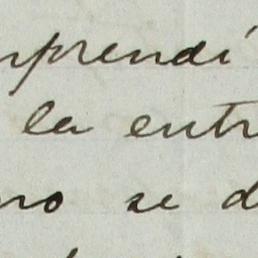 nprendí
la entr
no se d